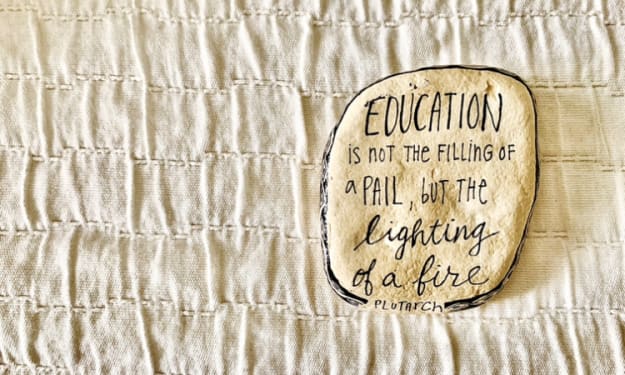 EDUCATION
is NOT THE FILLING OF
a PAIL, bUT THE
lighting
of a fire
PLUTArCH